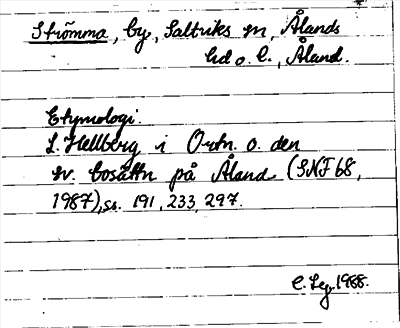 Strömma, by, Saltviks sn, Ålands
hd o. l., Åland.
Etymologi:
L. Hellberg i Ortn. o. den
sv. bosättn på Åland (SNF 68,
1987), ss. 191, 233, 297.
1988.